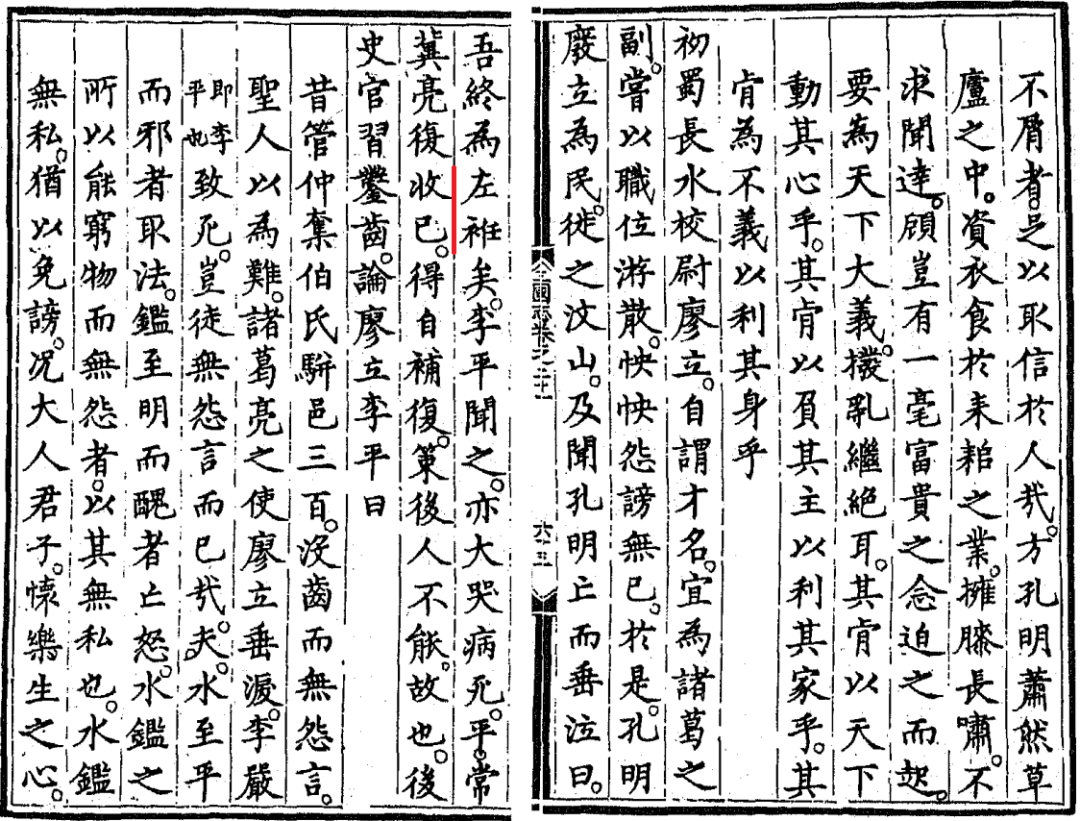 不屑者。足以取信於人哉。方孔明蕭然草
廬之中。資衣食於耒耜之業。擁膝長嘯。不
求聞達。顧豈有一毫富貴之念迫之而起。
要為天下大義。撥乱繼絕耳。其肯以天下
動其心乎。其肯以負其主以利其家乎。其
肯為不義以利其身乎
初蜀長水校尉廖立。自謂才名。宜為諸葛之
副。嘗以職位游散。怏怏怨謗無已。於是。孔明
廢立為民。徙之汶山。及聞孔明亡而垂泣曰。
三國志卷之二十
六三
吾終為左袵矣。李平聞之。亦大哭病死。平。常
冀亮復收已。得自補復。策後人不能。故也。後
史官習鑿齒。論廖立李平曰
昔管仲奪伯氏駢邑三百。沒齒而無怨言。
聖人以為難。諸葛亮之使廖立垂淚。李嚴
即李平也致死。豈徒無怨言而已哉。夫。水至平
而邪者取法。鑑至明而醜者亡怒。水鑑之
所以能窮物而無怨者。以其無私也。水鑑
無私。猶以免謗。况大人君子。懷樂生之心。